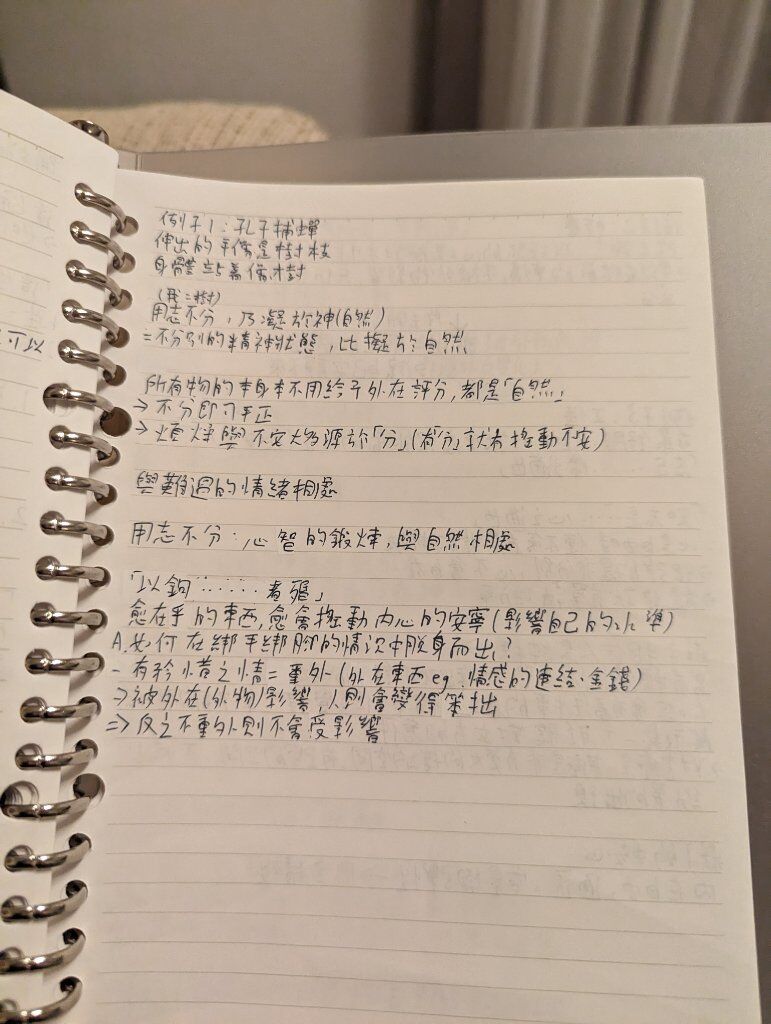 例子1：孔子捕蟬
伸出的手像是樹枝
身體站著像樹
(我=樹)
用志不分，乃凝於神(自然)
=不分別的精神狀態，比擬於自然
所有物的本身本不用給予外在評分,都是「自然」
→不分即可平正
→煩燥與不安大多源於「分」(有「分」就有撼動不安)
與難過的情緒相處
用志不分：心智的鍛煉,與自然相處
「以鉤……者殙」
愈在乎的東西,愈會撼動內心的安寧(影響自己的水準)
A.如何在綁手綁腳的情況中脫身而出?
-有矜惜之情=重外(外在東西eg.情感的連結、金錢)
→被外在(外物)影響,人則會變得笨拙
⇒反之不重外則不會受影響